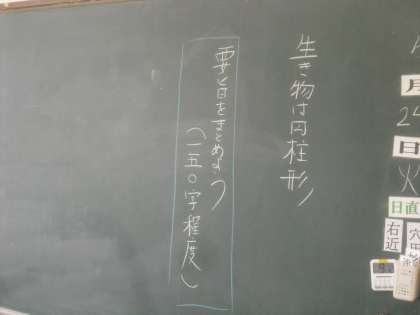 生き物は円柱形
要旨をまとめよう
(一五〇字程度)
月
24
日
火
日直
右近